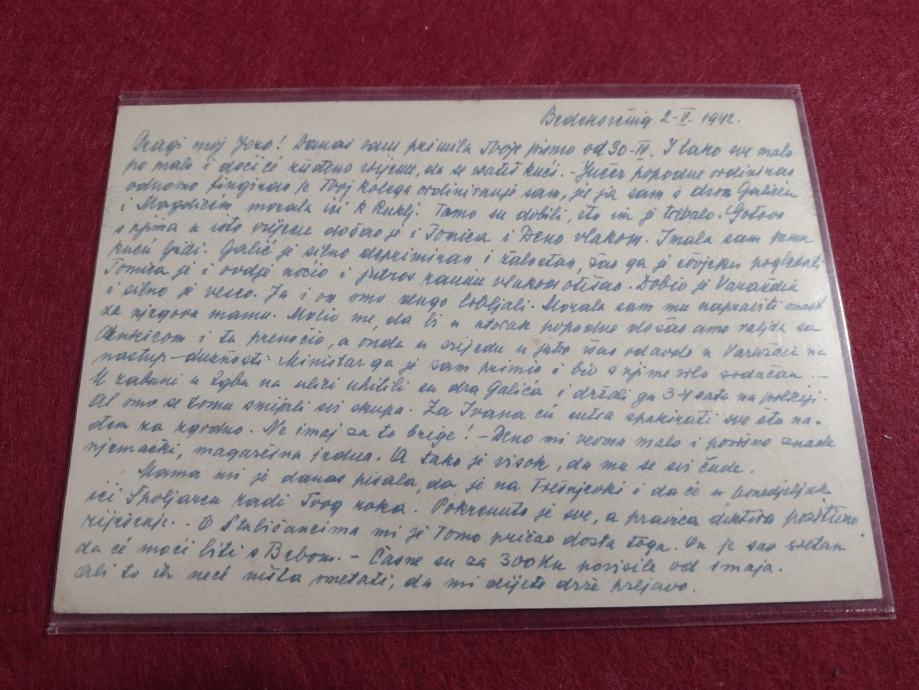 Bedekovčina 2-V. 1942.
Dragi moj Joxo! Danas sam primila Tvoje pismo od 30-IV. I tako sve malo
po malo i doći će žuđeno vrijeme, da se vratiš kući. - Jučer popodne ordinirao
odnosno fingirao je Tvoj kolega ordiniranje sam, jer ja sam s drom Galićem
i Magdićem morala ići k Tamo su dobili, što im je trebalo. Gotovo
s njima u isto vrijeme došao je i Tomica i Deno vlakom. Imala sam punu
kuću ljudi. Galić je silno deprimiran i žalostan, žao ga je čovjeku pogledati
Tomica je i ovdje noćio i jutros ranim vlakom otišao. Dobio je Varaždin
i silno je veseo. Ja i on smo dugo Morala sam mu napraviti
za njegovu mamu. Molio me, da bi u utorak popodne došao amo valjda sa
Ankicom i tu prenoćio, a onda u srijedu u jutro išao odavde u Varaždin na
nastup dužnosti. Ministar ga je sam primio i bio s njime vrlo srdačan -
U zabuni u Zgbu na ulici uhitili su dra Galića i držali ga 3-4 sata na policiji.
Al smo se tomu smijali svi skupa. Za Ivana ću sutra spakirati sve što na-
đem za zgodno. Ne imaj za to brige! - Deno mi veoma malo i površno znade
njemački, magarčina jedna. A tako je visok, da mu se svi čude.
Mama mi je danas pisala, da je na Trešnjevki i da će u ponedjeljak
ići Špoljarcu radi Tvog roka. Pokrenuto je sve, a pravica pozitivno
riješenje. - O Stubičancima mi je Tomo pričao dosta toga. On je sav sretan
da će moći biti s Bebom. - Časne su za 300 Kn povisile od 1 maja.
Ali to ih neće ništa smetati, da mi dijete drže prljavo.